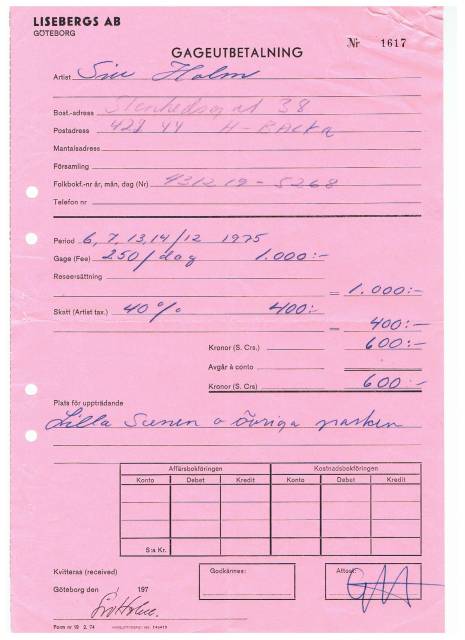 LISEBERGS AB
GÖTEBORG
Nr 1617
GAGEUTBETALNING
Artist Siv Holm
Bost.-adress Stenhedsgat 38
Postadress 422 44 H-BACKA
Mantalsadress
Församling
Folkbokf.-nr år, mån, dag (Nr) 431219-5268
Telefon nr
Period 6, 7, 13, 14/12 1975
Gage (Fee) 250/dag 1.000:-
Reseersättning
= 1.000:-
Skatt (Artist tax.) 40% 400:-
= 400:-
Kronor (S. Crs.) 600:-
Avgår à conto
Kronor (S. Crs) 600:-
Plats för uppträdande
Lilla Scenen o övriga parken
Affärsbokföringen Kostnadsbokföringen
Konto Debet Kredit Konto Debet Kredit
S:a Kr.
Kvitteras (received) Godkännes: Attest:
Göteborg den 197
Siv Holm
Form nr 19 2. 74